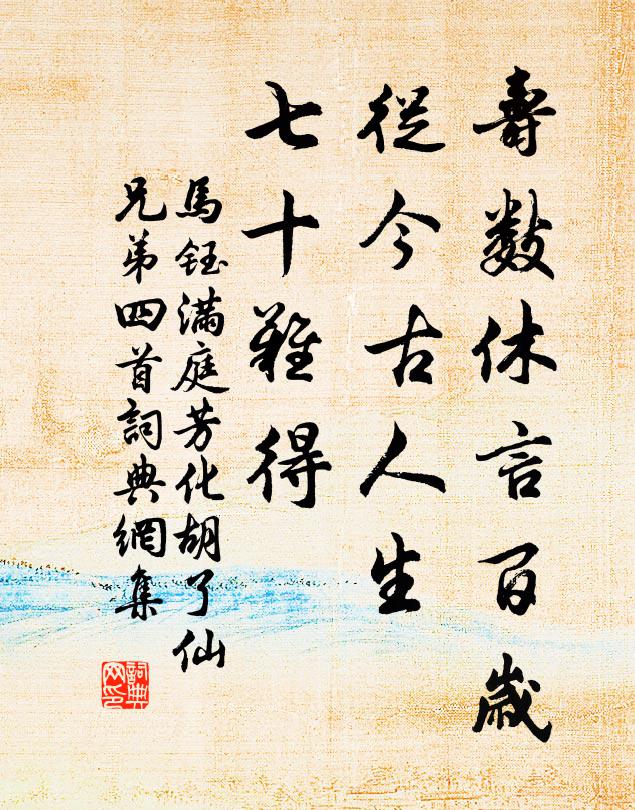 壽數休言百歲
從今古人生
七十難得
馬鈺滿庭芳化胡了仙
兄弟四首詞典網集
詞典
网印